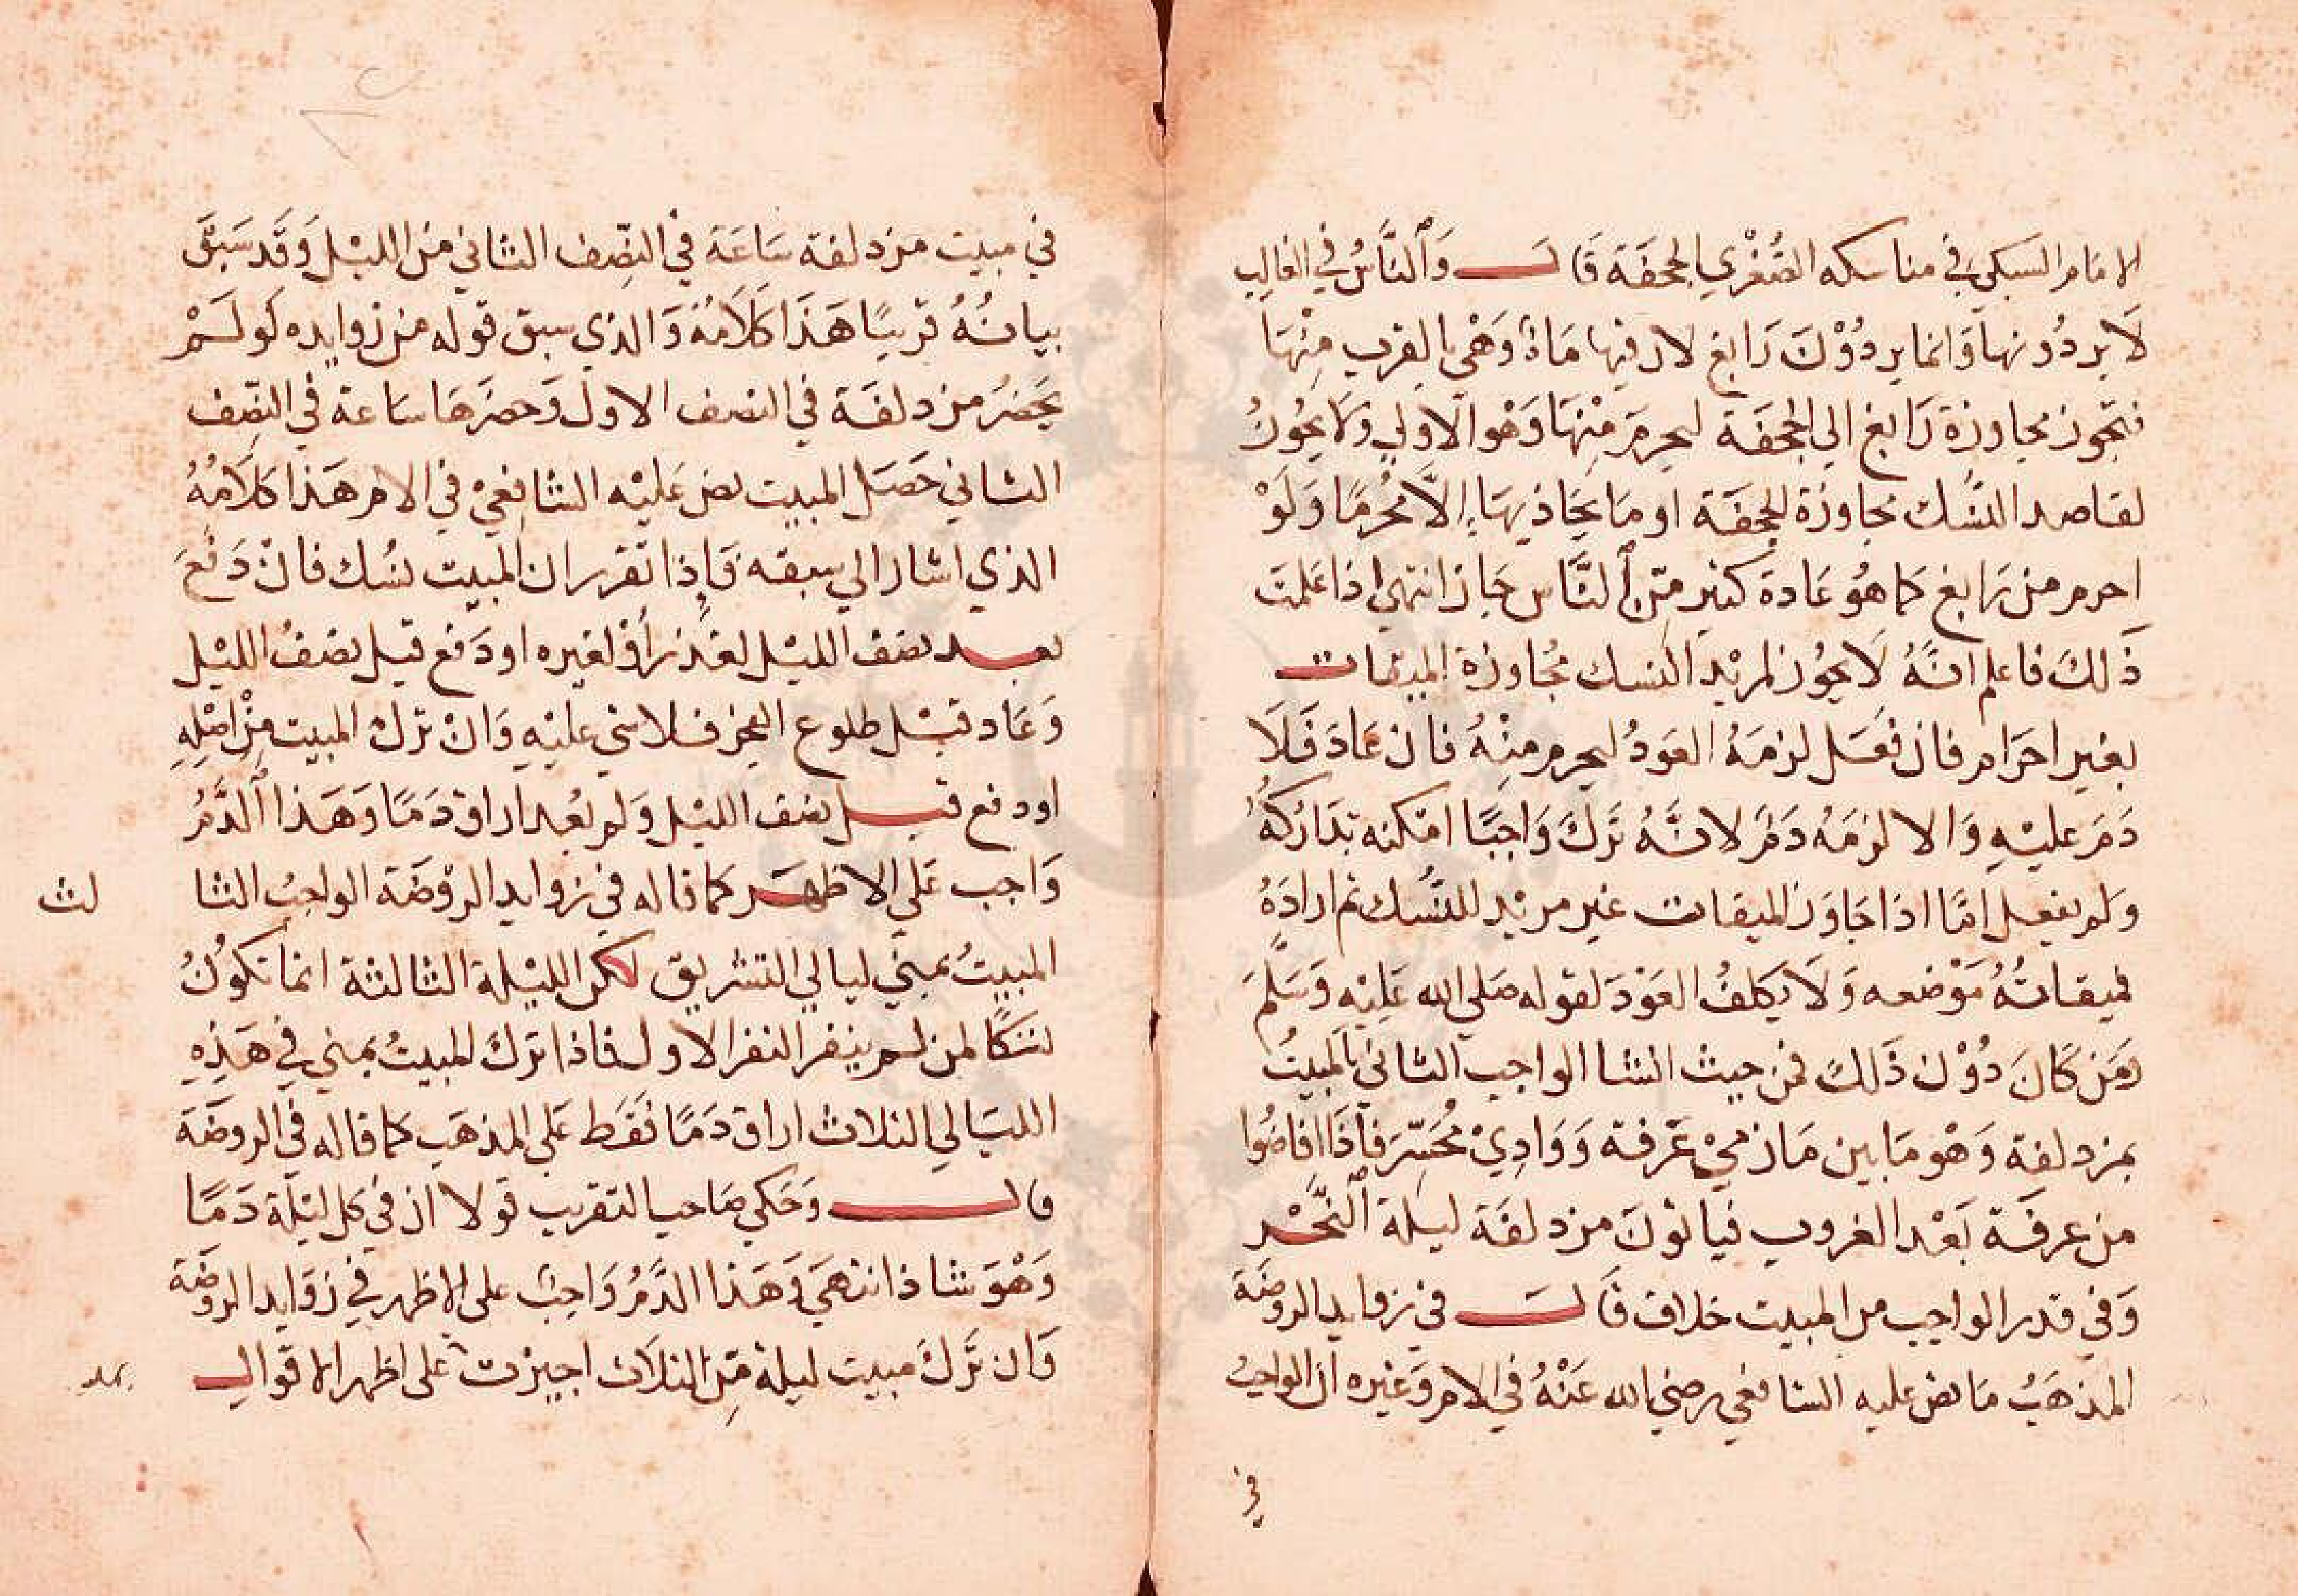 الامام السبكي في مناسكه الصُّغْري الجحفَة قَالَ وَالنَّاسُ في الغالِب
لَا يردُونها وَانما يردُوْنَ رَابغ لان فيها مَاءً وَهْي بالقرب مِنْهَا
فتجوز مجاوزة رَابغ الي الجحفَة ليحرمَ مِنْهَا وَهْو الاولي وَلا يجُوزُ
لقاصد النُسُك مجاوزَة للجحفَة او مَا يحَاذيهَا إلَّا محْرمًا وَلَوْ
احرم من رَابغ كما هُو عَادة كثير مِّنَ النَّاس جَاز انتهي اذا عَلمتَ
ذَلكَ فاعلم انَّهُ لَا يجُوز لمريْد النسك مُجاوزة الميقات
بغير احرَام فان فعَل لزمَهُ العَودُ ليحرم مِنْهُ فان عَادَ فَلَا
دَمَ عليْهِ وَالا لزمَهُ دَمٌ لانَّهُ تَركَ وَاجبًا امكنه تدَارُكهُ
وَلم يفعل امَّا اذَا جَاوَزَ الميقات غير مريْد للنُّسُك ثم ارادَهُ
فميقاتُهُ مَوْضعه وَلَا يكلفُ العَوْدَ لقوله صَلي الله عَليْه وَسَلَّمَ
وَمَن كَانَ دُوْنَ ذَلكَ فمن حيث انشا الواجب الثاني المبيتُ
بمزدلفة وَهْو مَا بين مَازمَيْ عَرفة وَوَادِيْ مُحَسِّر فإذَا افاضُوا
من عرفَة بَعْد الغروب فياتوْنَ مزدلفَة ليلة النَّحْر
وَفي قدر الواجب من المبيت خلاف قَالَ في زوايد الروضَة
المذهَبُ مَا نص عليه الشافعي رضي الله عَنْهُ في الام وَغيره ان الواجبُ
في
في مبيت مزدلفة سَاعَة في النِّصْف الثاني من الليْل وَقد سَبَقَ
بيانُهُ قريبًا هَذَا كَلَامُهُ وَالذي سبق قوله من زوايده لَو لَمْ
يَحضرَ مزدلفَة في النصف الاول وَحضرَهَا ساعة في النّصف
الثاني حَصَل المبيت نص عَليْه الشافعيْ في الام هَذا كَلَامُهُ
الذي اشار الي سبقه فَإِذا تقرر ان المبيت نسُك فانْ دَفعَ
بعد نصْف الليْل لعُذر أو لغيره او دَفع قبل نصْفُ الليْل
وَعَاد قبْل طلوع الفجر فلا شي عليْهِ وَانْ ترك المبيت مِنْ اصْلِهِ
او دفع قبل نصف الليْل وَلم يعُد اراق دَمًا وَهَذا الدَّمُ
وَاجب عَلي الاظهر كما قاله في زوايد الروْضَة الواجبُ الثا لث
المبيتُ بمني ليالي التشريق لكن الليْلة الثالثة انما تكوُنُ
نسُكًا لمن لم ينفر النفر الاول فاذا ترك المبيتُ بمني في هَذِهِ
الليَالي الثلاث اراق دَمًا فقَط عَلي المذهَب كما قاله في الروضَة
قال وَحَكي صَاحب التقريب قولا ان في كل ليْلة دَمًا
وَهْوَ شاذ انتهَي وَهَذا الدَّمُ وَاجبٌ على الاظهر في زوَايد الروضَة
وَان تَركَ مبيت ليلة مِّنَ الثلاَث اجبرت على اظهر الاقوال بمد